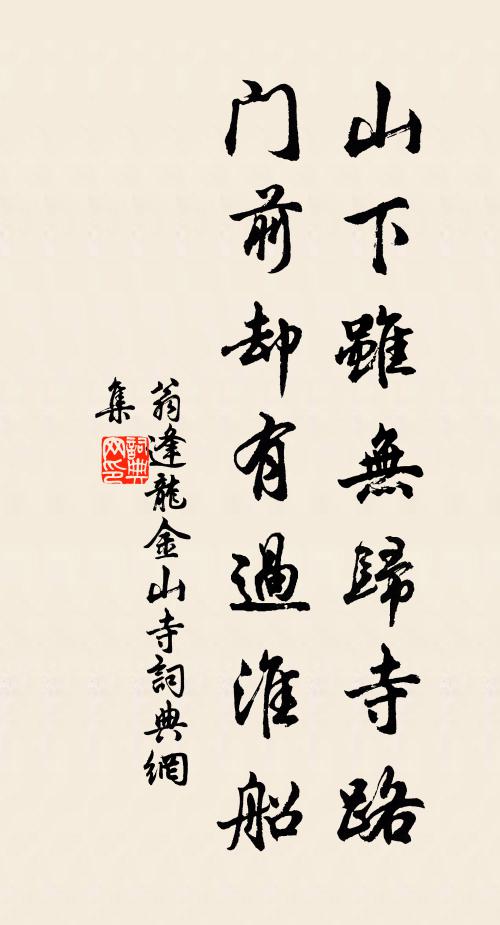 山下雖無歸寺路
门前却有過淮船
翁逢龍金山寺詞典網
集
詞典網印